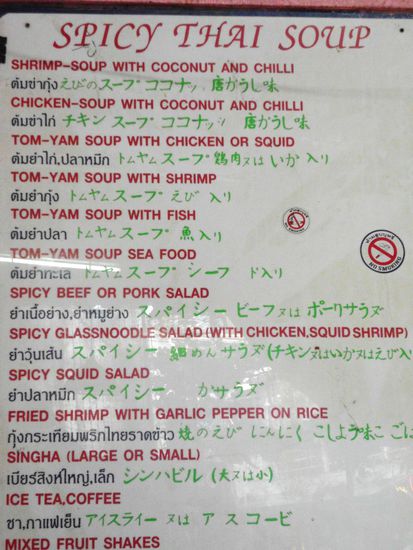 SPICY THAI SOUP
SHRIMP-SOUP WITH COCONUT AND CHILLI
ต้มข่ากุ้ง えびのスープ ココナッ 唐がうし味
CHICKEN-SOUP WITH COCONUT AND CHILLI
ต้มข่าไก่ チキン スープ ココナッ 唐がうし味
TOM-YAM SOUP WITH CHICKEN OR SQUID
ต้มยำไก่,ปลาหมึก トムヤムスープ 鶏肉又は いか 入り
TOM-YAM SOUP WITH SHRIMP
ต้มยำกุ้ง トムヤムスープ えび 入り
TOM-YAM SOUP WITH FISH
ต้มยำปลา トムヤムスープ 魚入り
TOM-YAM SOUP SEA FOOD
ต้มยำทะเล トムヤムスープ シーフ ド入り
SPICY BEEF OR PORK SALAD
ยำเนื้อย่าง,ยำหมูย่าง スパイシー ビーフ又は ポークサラダ
SPICY GLASSNOODLE SALAD (WITH CHICKEN,SQUID SHRIMP)
ยำวุ้นเส้น スパイシー 細めん サラダ (チキン又はいか又はえび入
SPICY SQUID SALAD
ยำปลาหมึก スパイシー かサラダ
FRIED SHRIMP WITH GARLIC PEPPER ON RICE
กุ้งกระเทียมพริกไทยราดข้าว 焼のえび にんにく こしょう味 ごは
SINGHA (LARGE OR SMALL)
เบียร์สิงห์ใหญ่,เล็ก シンハビル (大又は小)
ICE TEA,COFFEE
ชา,กาแฟเย็น アイスライー 又は アス コービ
MIXED FRUIT SHAKES
NO SMOKING